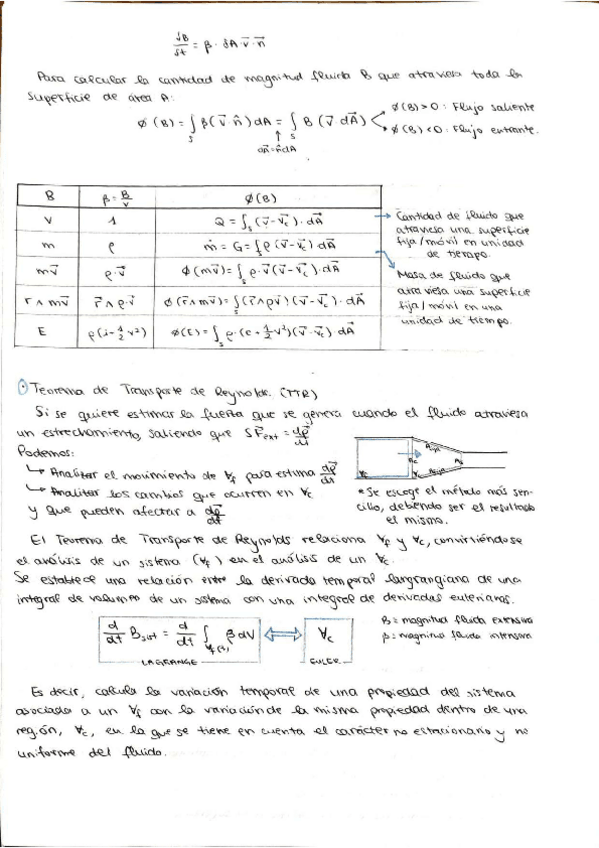 δB/δt = β · δA · v⃗ · n⃗
Para calcular la cantidad de magnitud fluida B que atraviesa toda la
superficie de área A:
φ(B) = ∫s β(v⃗ · n̂) dA = ∫s B (v⃗ · dA⃗)
φ(B)>0 : Flujo saliente
φ(B)<0 : Flujo entrante.
dA⃗ = n̂dA
B | β = B/V | φ(B)
V | 1 | Q = ∫s (v⃗ - v⃗c) · dA⃗
m | ρ | ṁ = G = ∫s ρ (v⃗ - v⃗c) · dA⃗
mv⃗ | ρ · v⃗ | φ(mv⃗) = ∫s ρ · v⃗ (v⃗ - v⃗c) · dA⃗
r ∧ mv⃗ | r⃗ ∧ ρ · v⃗ | φ(r⃗ ∧ mv⃗) = ∫s (r⃗ ∧ ρv⃗) (v⃗ - v⃗c) · dA⃗
E | φ(E) = ∫s ρ · (e + 1/2 v²)(v⃗ - v⃗c) · dA⃗
Cantidad de fluido que
atraviesa una superficie
fija/móvil en unidad
de tiempo.
Masa de fluido que
atraviesa una superficie
fija/móvil en una
unidad de tiempo.
Teorema de Transporte de Reynolds. (TTR)
Si se quiere estimar la fuerza que se genera cuando el fluido atraviesa
un estrechamiento, sabiendo que
Podemos:
↳ Analizar el movimiento de ∀f para estima dp⃗/dt
↳ Analizar los cambios que ocurren en ∀c
y que pueden afectar a dp⃗/dt
* Se escoge el método más sen-
cillo, debiendo ser el resultado
el mismo.
El Teorema de Transporte de Reynolds relaciona ∀f y ∀c, convirtiéndose
el análisis de un sistema (∀f) en el análisis de un ∀c.
Se establece una relación entre la derivada temporal langrangiana de una
integral de volumen de un sistema con una integral de derivadas eulerianas.
d/dt Bsist = d/dt ∫∀f(t) β dV ⟺ ∀c
LAGRANGE EULER
B = magnitud fluida extensiva
β = magnitud fluida intensiva
Es decir, calcula la variación temporal de una propiedad del sistema
asociada a un ∀f con la variación de la misma propiedad dentro de una
región, ∀c, en la que se tiene en cuenta el carácter no estacionario y no
uniforme del fluido.